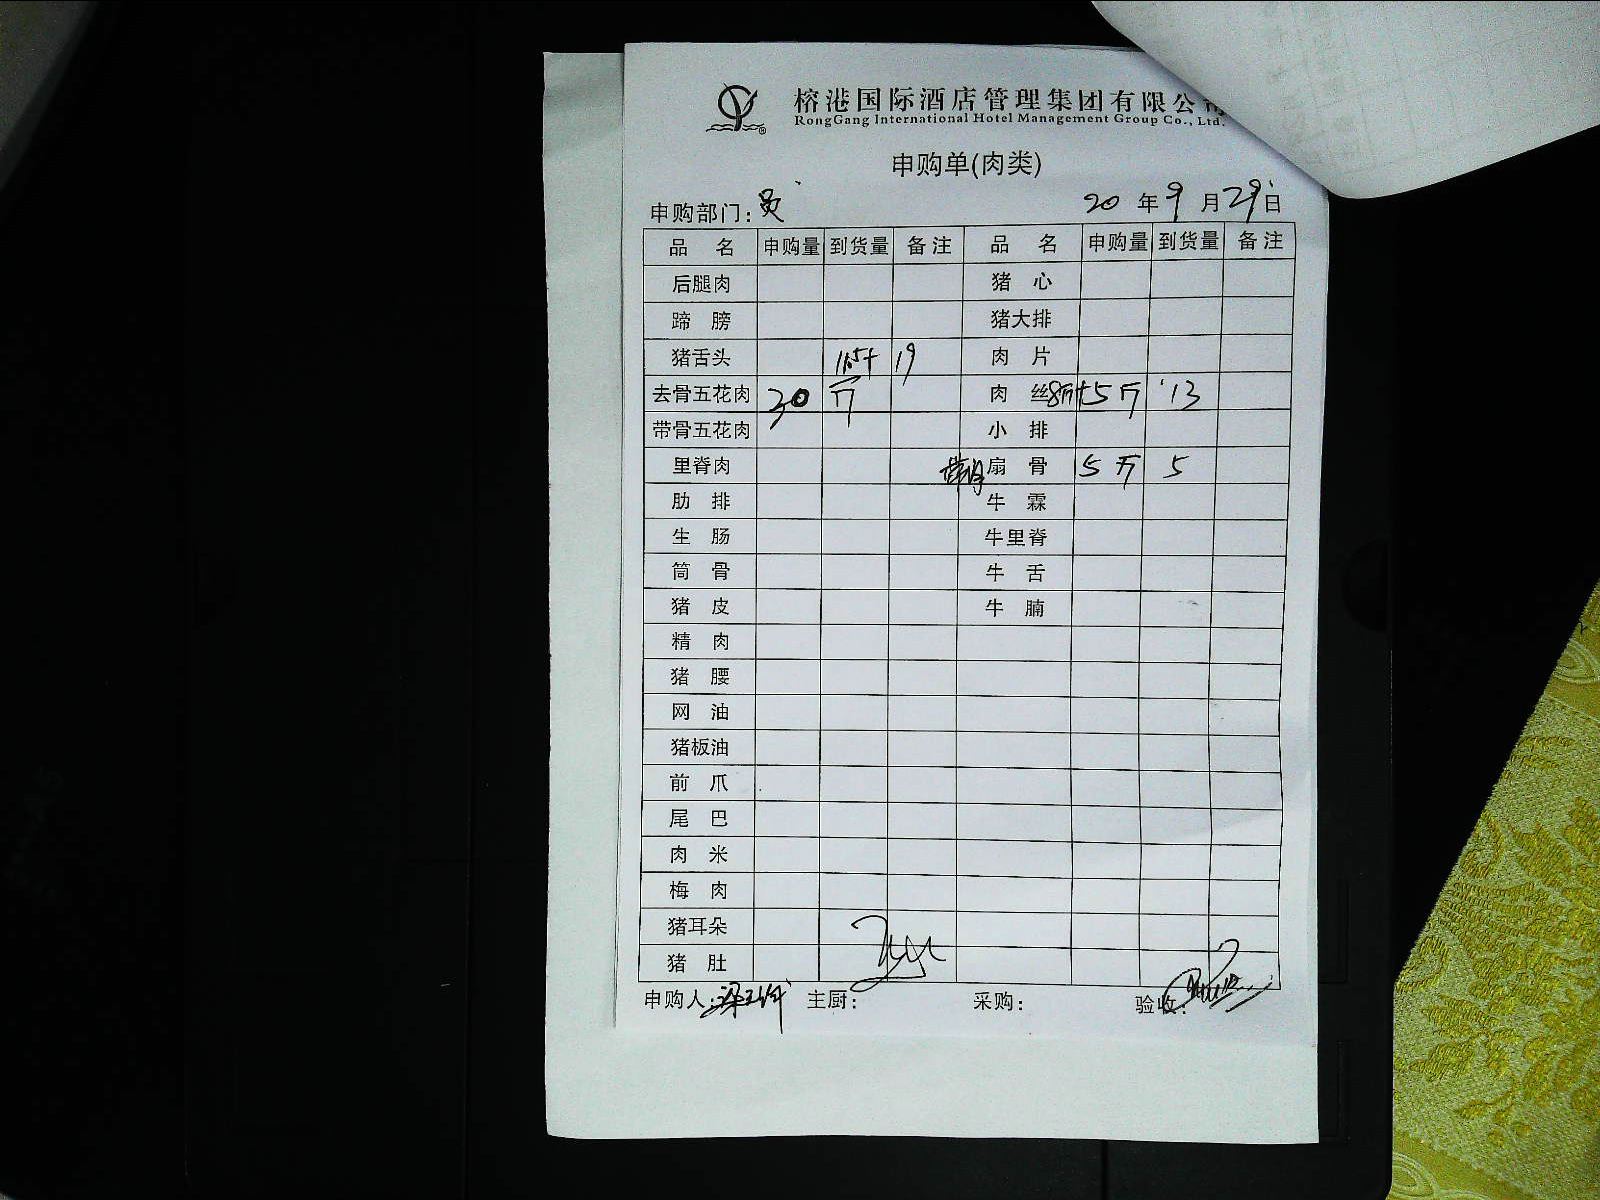 榕港国际酒店管理集团有限公司
RongGang International Hotel Management Group Co., Ltd.
申购单(肉类)
申购部门：员 20年9月29日
品名 申购量 到货量 备注 品名 申购量 到货量 备注
后腿肉 猪心
蹄膀 猪大排
猪舌头 19 肉片
去骨五花肉 30 斤 肉丝 8斤+5斤 13
带骨五花肉 小排
里脊肉 扇骨 5斤 5
肋排 牛霖
生肠 牛里脊
筒骨 牛舌
猪皮 牛腩
精肉
猪腰
网油
猪板油
前爪
尾巴
肉米
梅肉
猪耳朵
猪肚
申购人： 主厨： 采购： 验收：